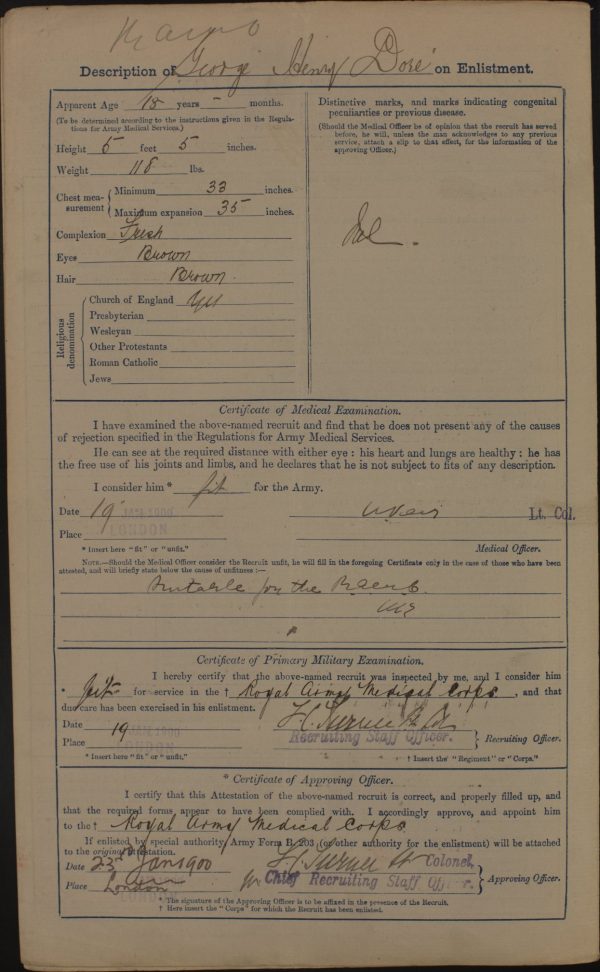 Description of George Henry Doré on Enlistment.
Apparent Age 18 years - months.
(To be determined according to the instructions given in the Regulations for Army Medical Services.)
Height 5 feet 5 inches.
Weight 118 lbs.
Chest measurement { Minimum 33 inches.
Maximum expansion 35 inches.
Complexion Fresh
Eyes Brown
Hair Brown.
Religious denomination
Church of England Yes
Presbyterian
Wesleyan
Other Protestants
Roman Catholic
Jews
Distinctive marks, and marks indicating congenital
peculiarities or previous disease.
(Should the Medical Officer be of opinion that the recruit has served
before, he will, unless the man acknowledges to any previous
service, attach a slip to that effect, for the information of the
approving Officer.)
Certificate of Medical Examination.
I have examined the above-named recruit and find that he does not present any of the causes
of rejection specified in the Regulations for Army Medical Services.
He can see at the required distance with either eye: his heart and lungs are healthy: he has
the free use of his joints and limbs, and he declares that he is not subject to fits of any description.
I consider him* fit for the Army.
Date 19 JAN 1900
Lt. Col.
Place LONDON
* Insert here "fit" or "unfit."
Medical Officer.
NOTE.—Should the Medical Officer consider the Recruit unfit, he will fill in the foregoing Certificate only in the case of those who have been
attested, and will briefly state below the cause of unfitness:—
Suitable for the
Certificate of Primary Military Examination.
I hereby certify that the above-named recruit was inspected by me, and I consider him
* fit for service in the † Royal Army Medical Corps, and that
due care has been exercised in his enlistment.
Date 19 JAN 1900
H. Turner
Place LONDON
Recruiting Staff Officer. } Recruiting Officer.
* Insert here "fit" or "unfit."
† Insert the "Regiment" or "Corps."
* Certificate of Approving Officer.
I certify that this Attestation of the above-named recruit is correct, and properly filled up, and
that the required forms appear to have been complied with. I accordingly approve, and appoint him
to the † Royal Army Medical Corps
If enlisted by special authority, Army Form B. 203 (or other authority for the enlistment) will be attached
to the original attestation.
Date 23 Jan 1900
H. Turner Colonel,
Place London
Chief Recruiting Staff Officer. } Approving Officer.
* The signature of the Approving Officer is to be affixed in the presence of the Recruit.
† Here insert the "Corps" for which the Recruit has been enlisted.